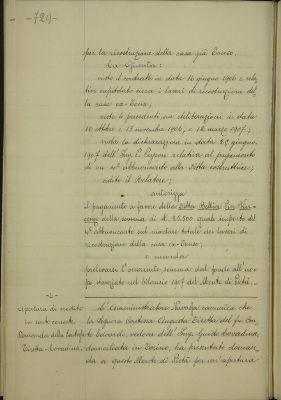 -729-
per la ricostruzione della casa già Conso.
visto il contratto in data 16 giugno 1906 e rela-
tivo capitolato circa i lavori di ricostruzione del-
la casa ex-Conso;
viste le precedenti sue deliberazioni in data
16 ottobre e 13 novembre 1906, e 12 marzo 1907;
vista la dichiarazione in data 28 giugno
1907 dell'Ing. relativa al pagamento
di un 4º abbuonconto alla Ditta costruttrice;
udito il Relatore;
autorizza
il pagamento a favore della Ditta Bellia Pier Vin-
cenzo della somma di L. 25.500 quale importo del
4º abbuonconto sul montare totale dei lavori di
ricostruzione della casa ex-Conso;
e manda
prelevarsi l'occorrente somma dal fondo all'uo-
po stanziato nel bilancio 1907 del Monte di Pietà.
-2-
Apertura di credito
in conto corrente
Domanda della
L'Amministratore comunica che
la Signora Contessa Augusta
Edoardo, vedova dell'Ing. Guido
domiciliata in Torino, ha presentato doman-
da a questo Monte di Pietà per un'apertura